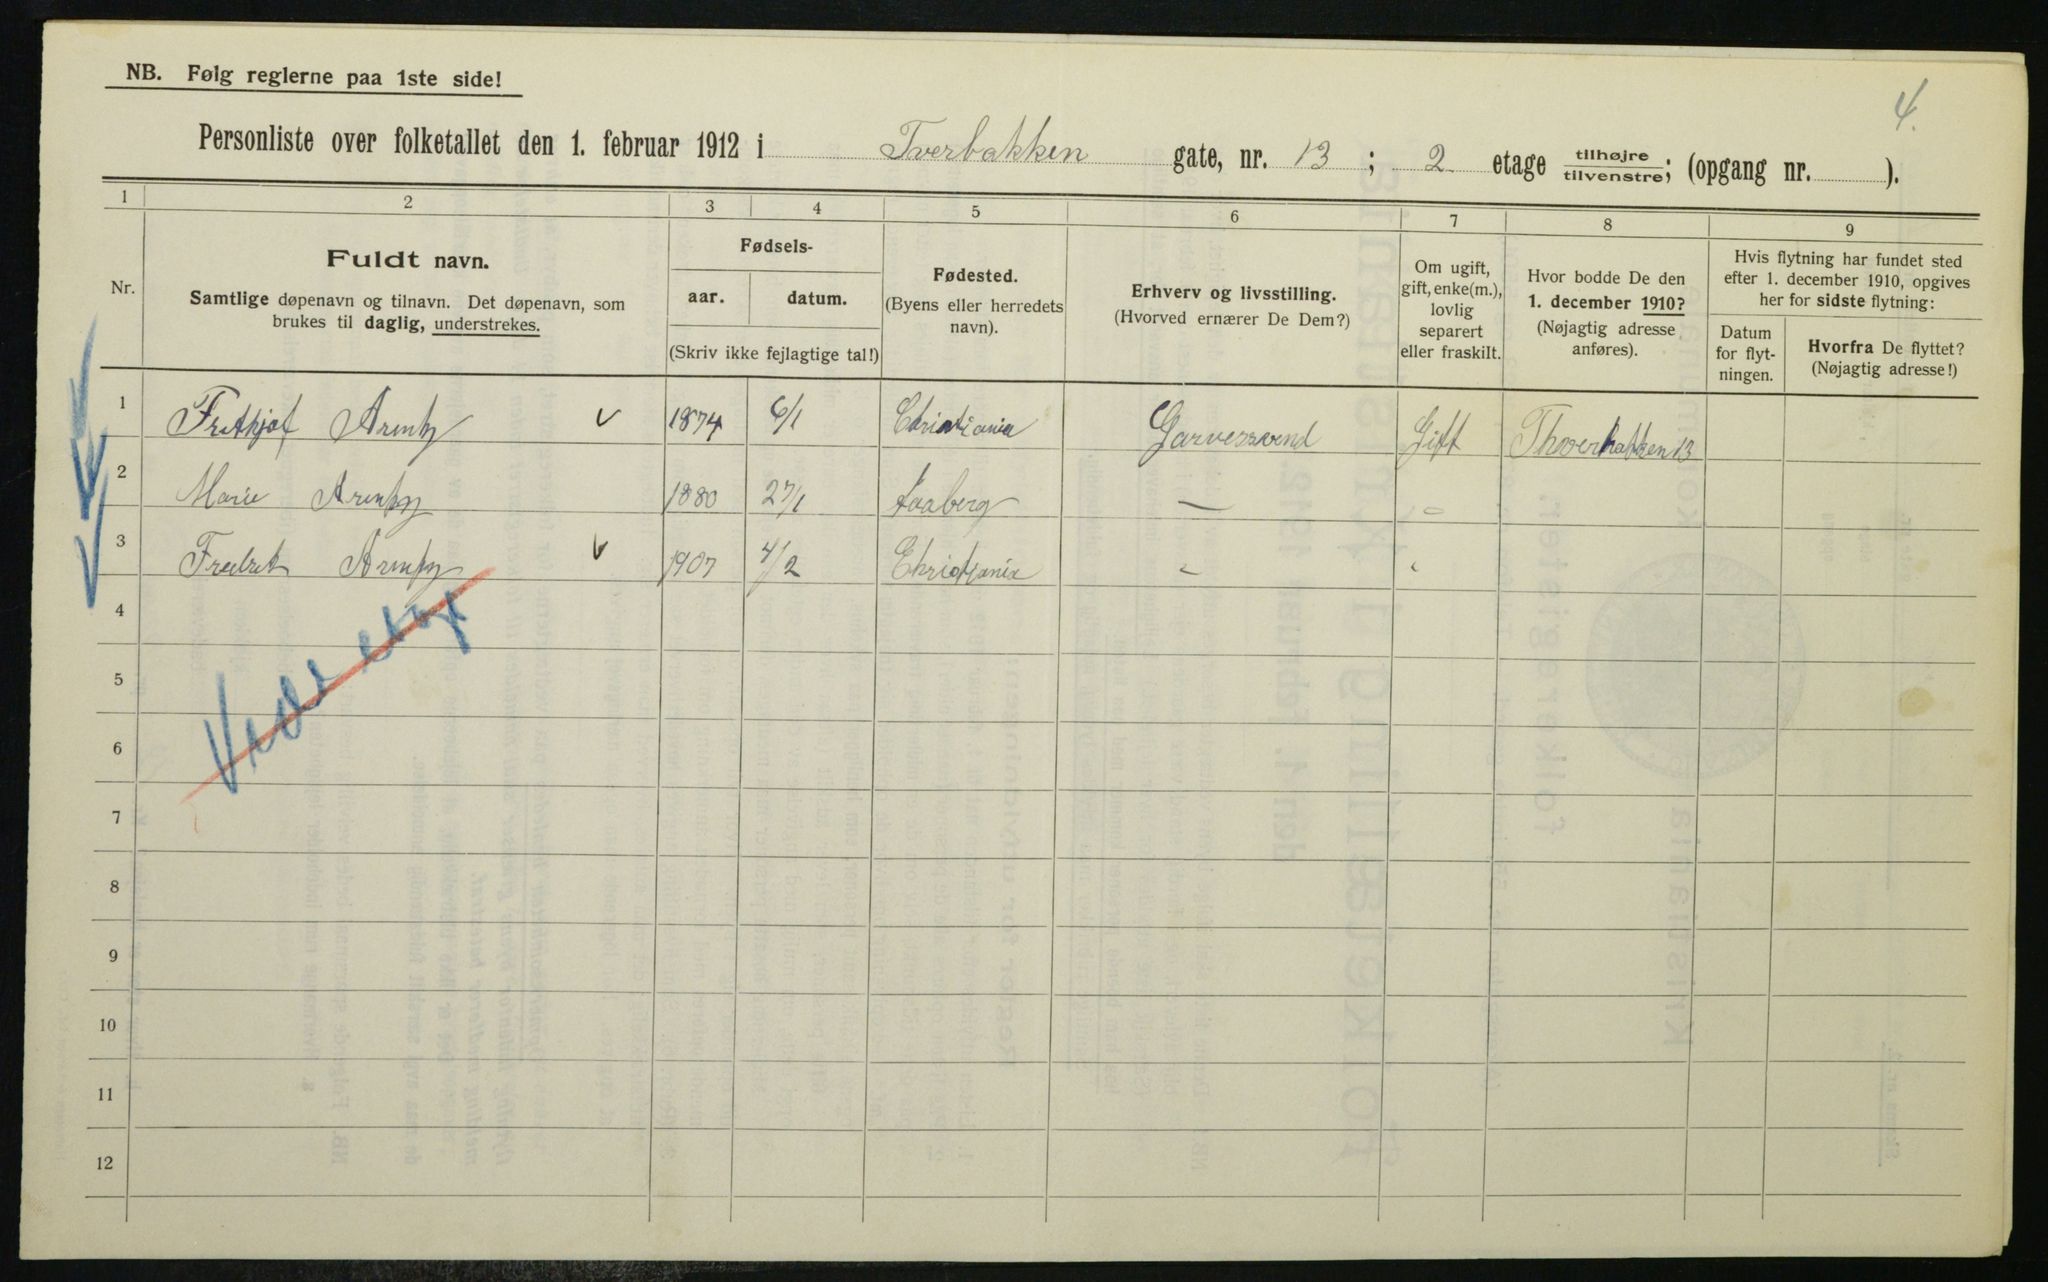 4.
NB. Følg reglerne paa 1ste side!
Personliste over folketallet den 1. februar 1912 i Tverbakken gate, nr. 13 ; 2 etage tilhøjre/tilvenstre; (opgang nr. ).
1 2 3 4 5 6 7 8 9
Nr.
Fuldt navn.
Samtlige døpenavn og tilnavn. Det døpenavn, som
brukes til daglig, understrekes.
Fødsels-
aar. datum.
(Skriv ikke fejlagtige tal!)
Fødested.
(Byens eller herredets
navn).
Erhverv og livsstilling.
(Hvorved ernærer De Dem?)
Om ugift,
gift, enke(m.),
lovlig
separert
eller fraskilt.
Hvor bodde De den
1. december 1910?
(Nøjagtig adresse
anføres).
Hvis flytning har fundet sted
efter 1. december 1910, opgives
her for sidste flytning:
Datum
for flyt-
ningen.
Hvorfra De flyttet?
(Nøjagtig adresse!)
1 Frithjof 1874 6/1 Christiania Garvesvend Gift Thverbakken 13
2 Marie 1880 27/1 —
3 1907 4/2 Christiania
4
5
6
7
8
9
10
11
12